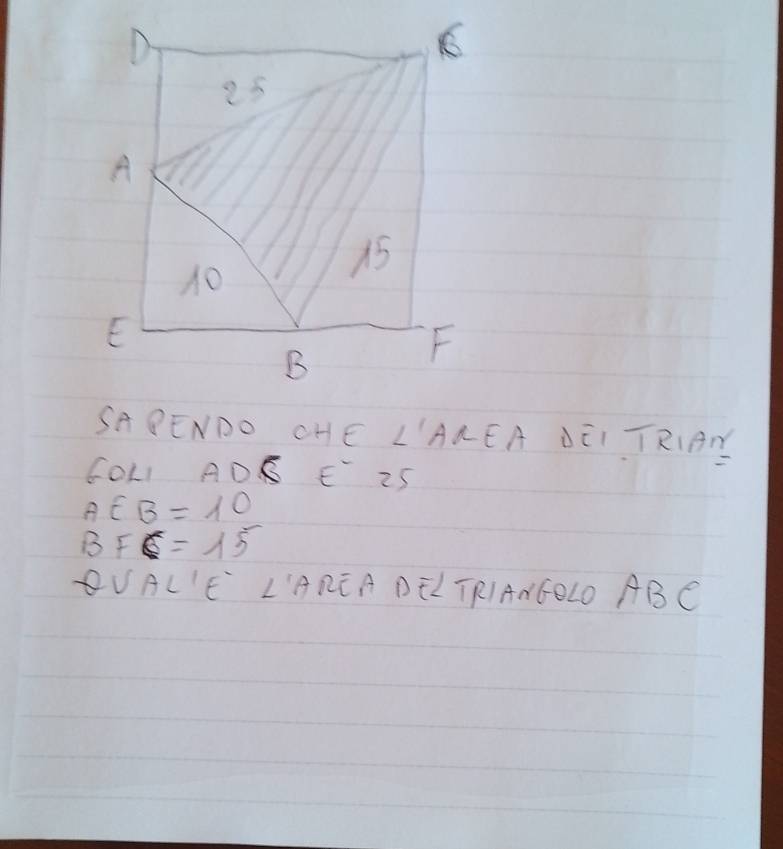 D C
25
A
10 15
E F
B
SAPENDO CHE L'AREA DEI TRIAN
GOLI ADC E' 25
AEB = 10
BFC = 15
QUAL'E' L'AREA DEL TRIANGOLO ABC